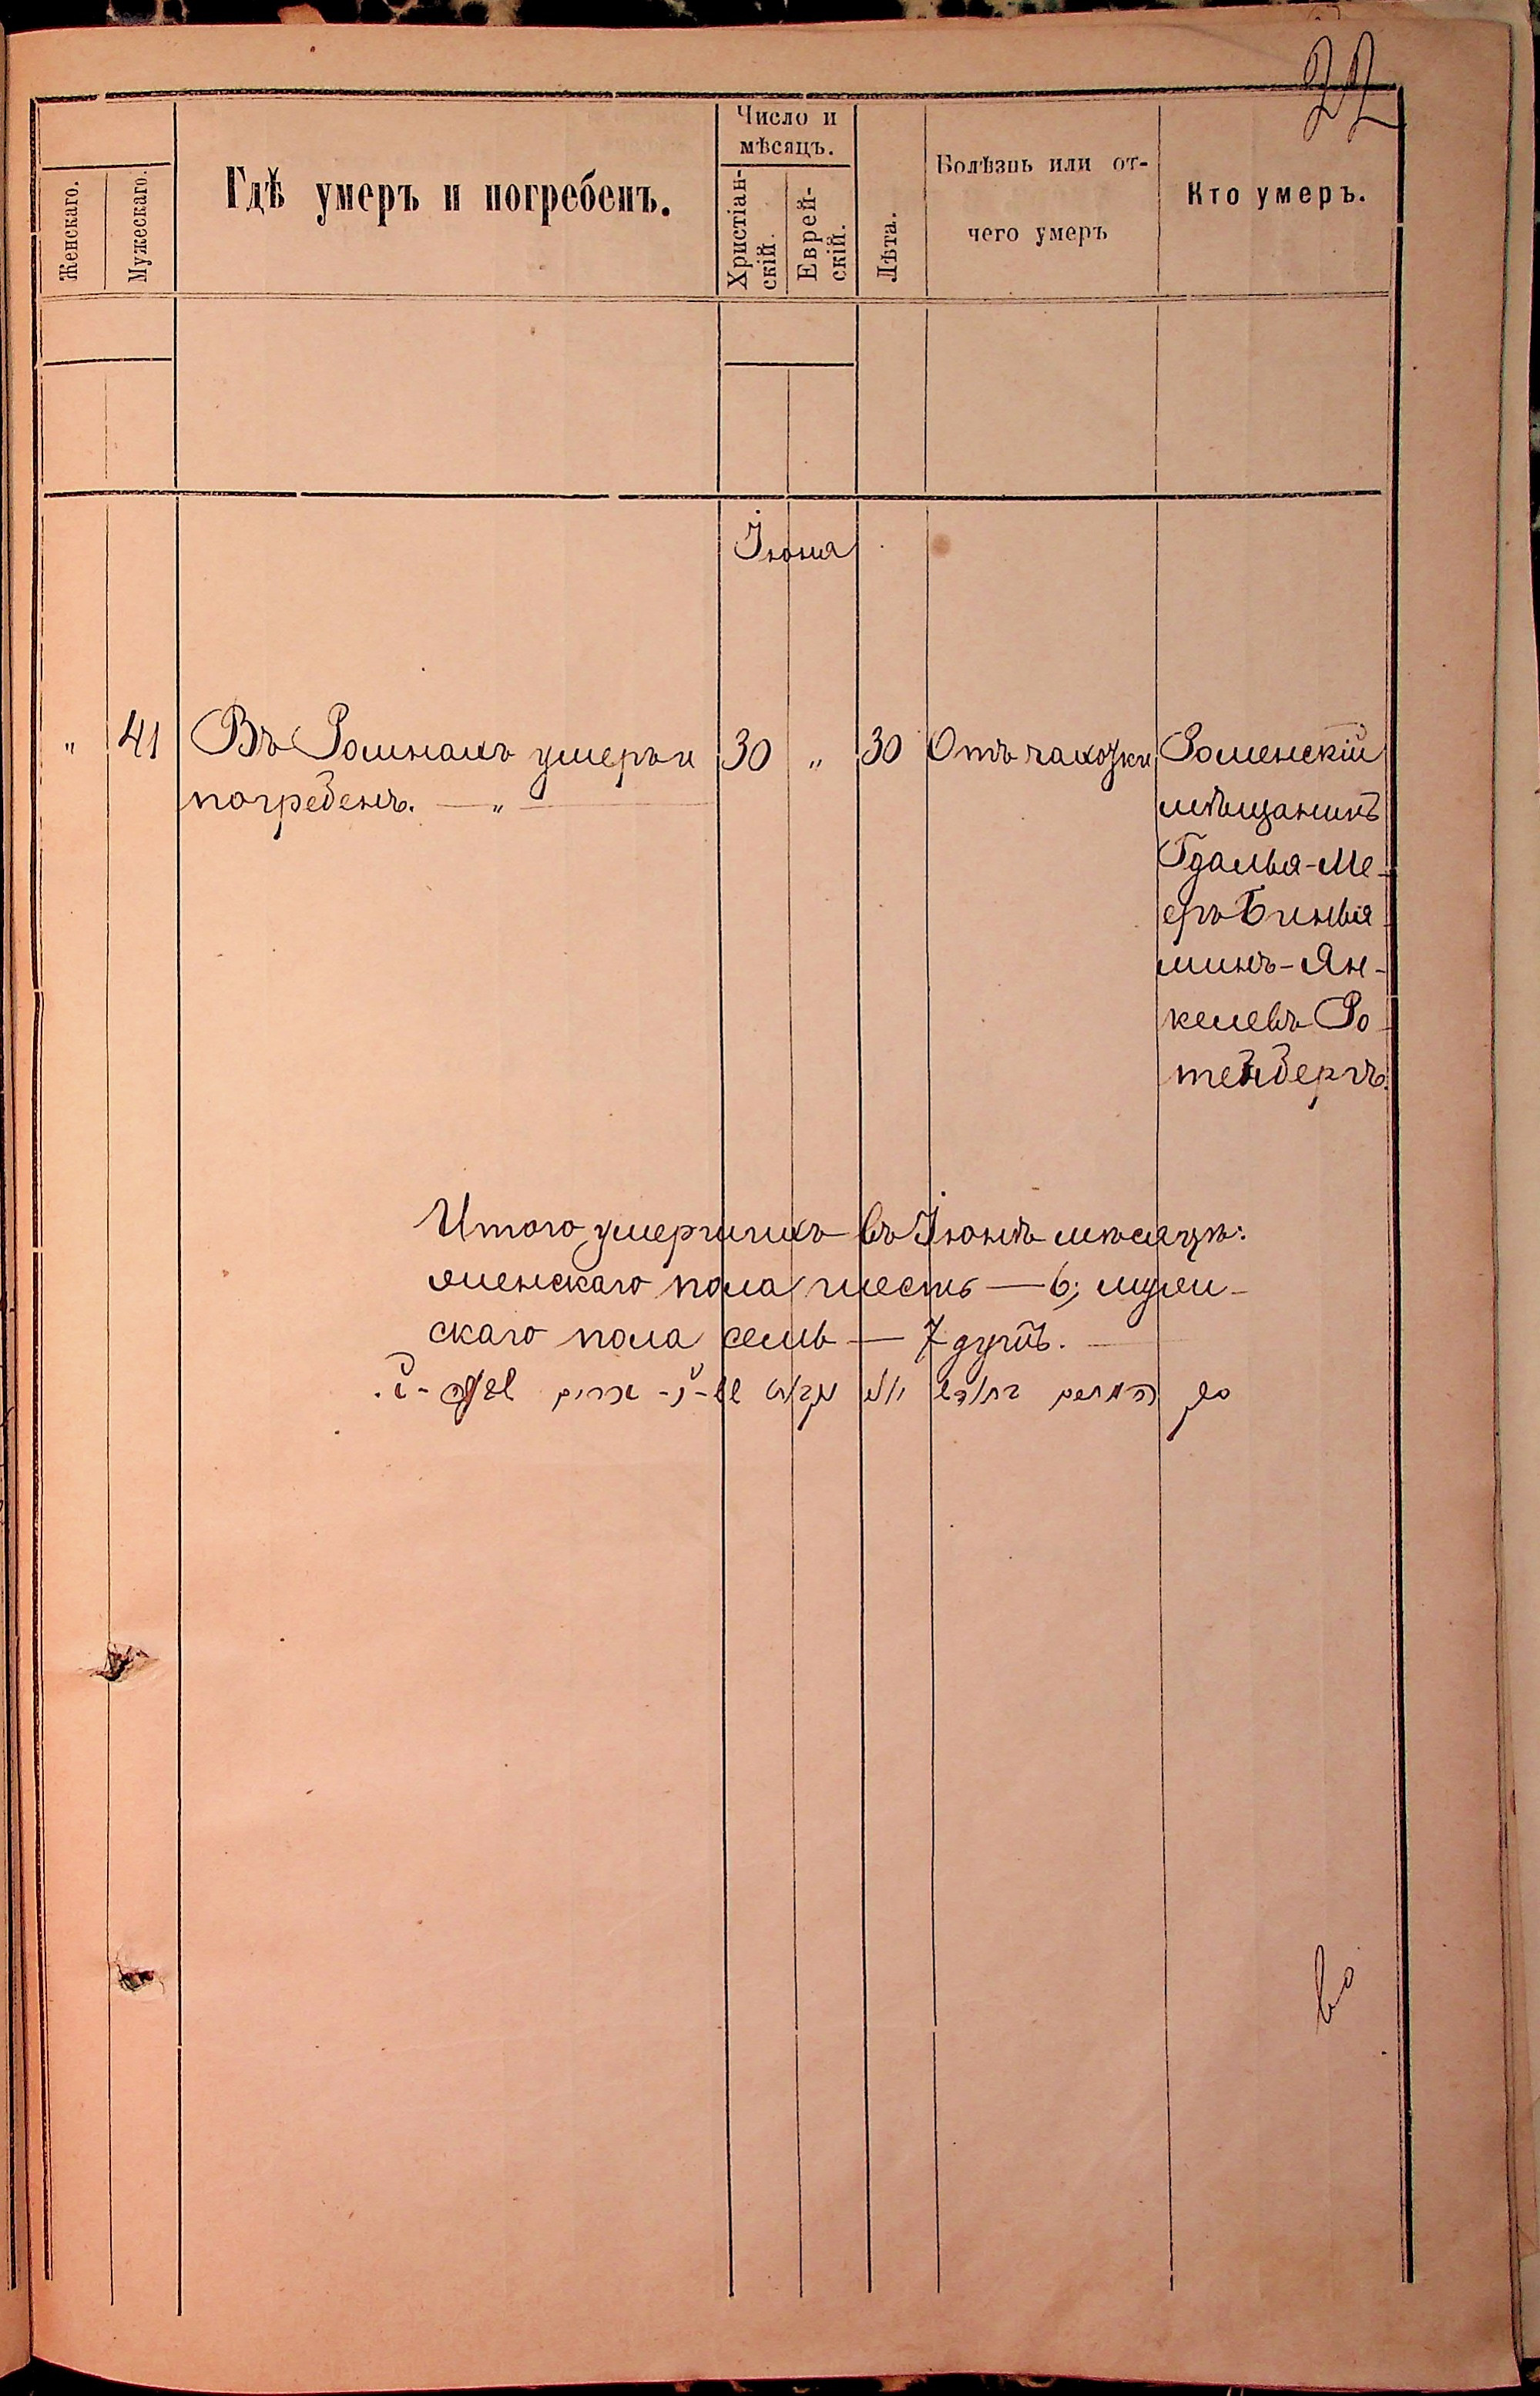 22
Женскаго.
Мужескаго.
Гдѣ умеръ и погребенъ.
Число и
мѣсяцъ.
Христіан-
скій.
Еврей-
скій.
Лѣта.
Болѣзнь или от-
чего умеръ
Кто умеръ.
Іюня
" 41 Въ Ромнахъ умеръ и 30 " 30 Отъ чахотки Роменскій
погребенъ. — " —
мѣщанинъ
Гдалья-Ме-
еръ Бинья-
минъ-Ян-
келевъ Ро-
тенбергъ.
Итого умершихъ въ Іюнѣ мѣсяцѣ:
женскаго пола шесть — 6; муже-
скаго пола семь — 7 душъ. —
во